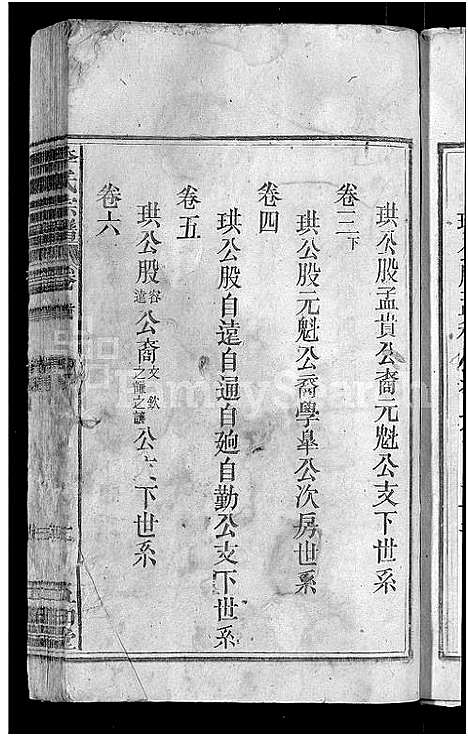 珙公股孟貴公裔元魁公支下世系
卷三下
珙公股元魁公裔學皐公次房世系
卷四
珙公股自遠自通自廻自勤公支下世系
卷五
珙公股容遠公裔文欽之之公支下世系
卷六
李氏宗譜
FamilySearch